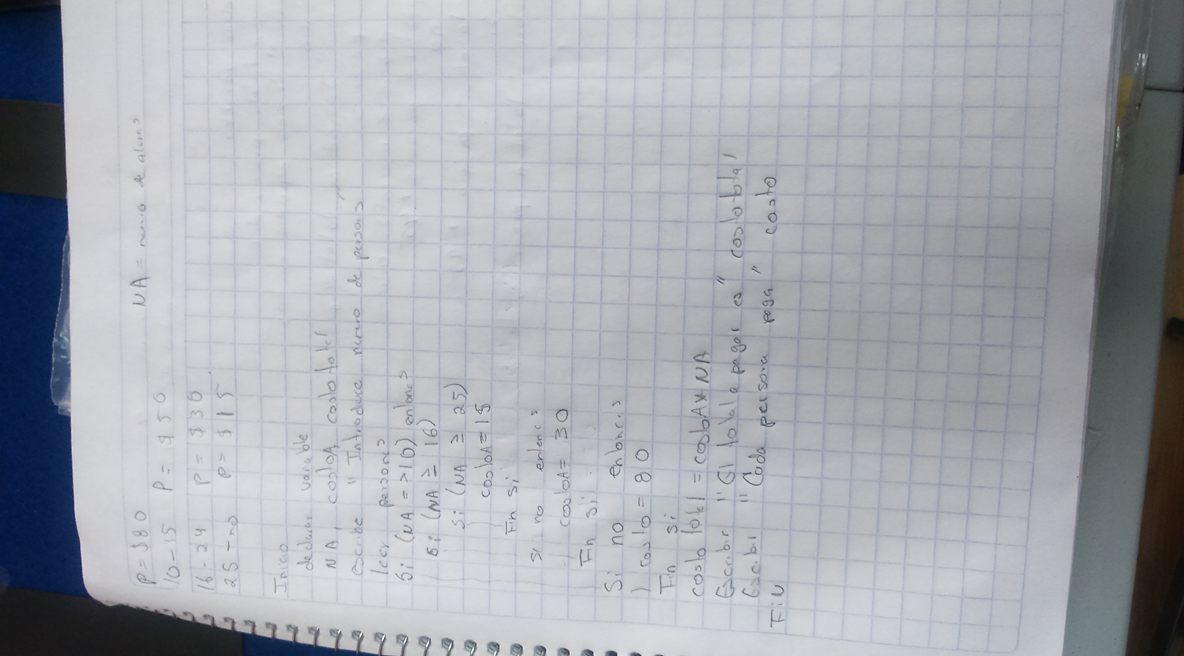 P = $80 NA = numero de alum>
10-15 P = $50
16-24 P = $30
25-no P = $15
Inicio
declarar variable
NA, costoA, costo total
escribe "Introduce numero de person>"
leer person>
Si (NA => 10) entonc>
Si (NA ≥ 16)
Si (NA ≥ 25)
costoA = 15
Fn si
si no entonc>
costoA = 30
Fn si
Si no entonc>
costo = 80
Fin si
costo total = costoA * NA
Escribir "El total a pagar es" costototal
Escribi "Cada persona paga" costo
FiN